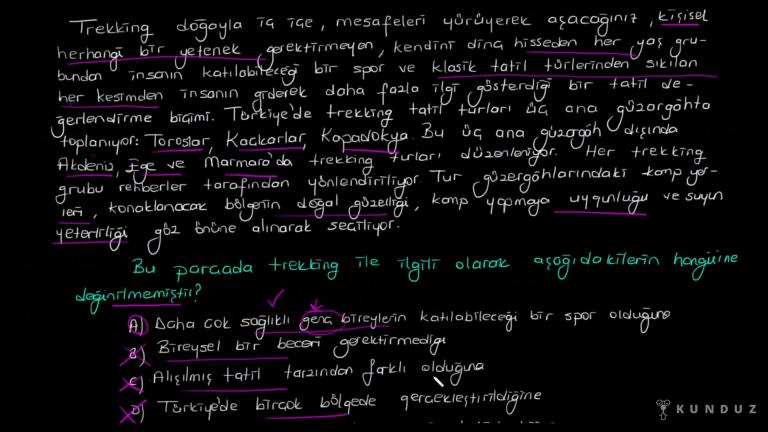 Trekking doğayla iç içe, mesafeleri yürüyerek aşacağınız, kişisel
herhangi bir yetenek gerektirmeyen, kendini dinç hisseden her yaş gru-
bundan insanın katılabileceği bir spor ve klasik tatil türlerinden sıkılan
her kesimden insanın giderek daha fazla ilgi gösterdiği bir tatil de-
ğerlendirme biçimi. Türkiye'de trekking tatil turları üç ana güzargâhta
toplanıyor: Toroslar, Kaçkarlar, Kapadokya. Bu üç ana güzargâh dışında
Akdeniz, Ege ve Marmara'da trekking turları düzenleniyor. Her trekking
grubu rehberler tarafından yönlendiriliyor. Tur güzergâhlarındaki kamp yer-
leri, konaklanacak bölgenin doğal güzelliği, kamp yapmaya uygunluğu ve suyun
yeterliliği göz önüne alınarak seçiliyor.
Bu parçada trekking ile ilgili olarak aşağıdakilerin hangisine
değinilmemiştir?
A) Daha çok sağlıklı genç bireylerin katılabileceği bir spor olduğuna
B) Bireysel bir beceri gerektirmediği
C) Alışılmış tatil tarzından farklı olduğuna
D) Türkiye'de birçok bölgede gerçekleştirildiğine
KUNDUZ